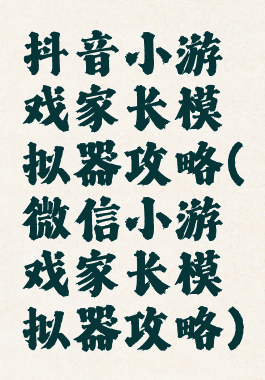 抖音小游
戏家长模
拟器攻略(
微信小游
戏家长模
拟器攻略)